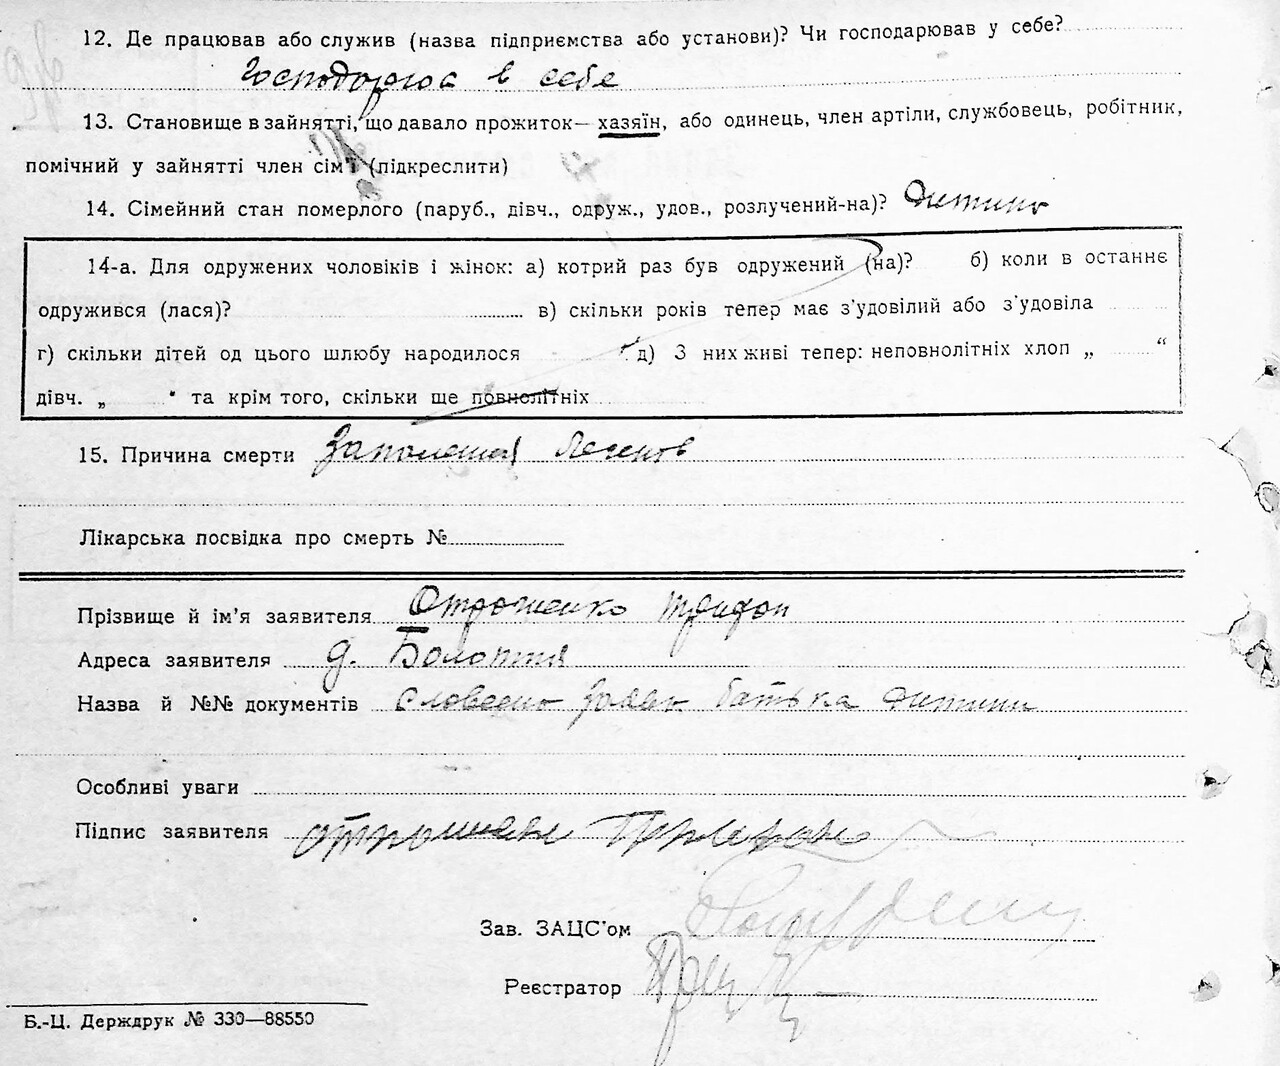 12. Де працював або служив (назва підприємства або установи)? Чи господарював у себе?
Господорює в себе
13. Становище в зайнятті, що давало прожиток— хазяїн, або одинець, член артіли, службовець, робітник,
помічний у зайнятті член сім'ї (підкреслити)
14. Сімейний стан померлого (паруб., дівч., одруж., удов., розлучений-на)? Дитина
14-а. Для одружених чоловіків і жінок: а) котрий раз був одружений (на)? б) коли в останнє
одружився (лася)? в) скільки років тепер має з'удовілий або з'удовіла
г) скільки дітей од цього шлюбу народилося д) З них живі тепер: неповнолітніх хлоп „ “
дівч. „ " та крім того, скільки ще повнолітніх
15. Причина смерти Запалення легенів
Лікарська посвідка про смерть №
Прізвище й ім'я заявителя Отрошенко Трифон
Адреса заявителя д. Болотня
Назва й №№ документів Словесно заява батька дитини
Особливі уваги
Підпис заявителя
Зав. ЗАЦС'ом
Реєстратор
Б.-Ц. Держдрук № 330—88550